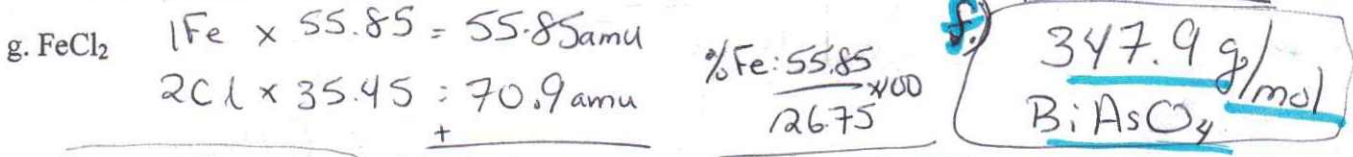 g. FeCl₂
1Fe × 55.85 = 55.85amu
2Cl × 35.45 = 70.9amu
+
%Fe: 55.85
×100
126.75
f.)
347.9 g/mol
BiAsO₄